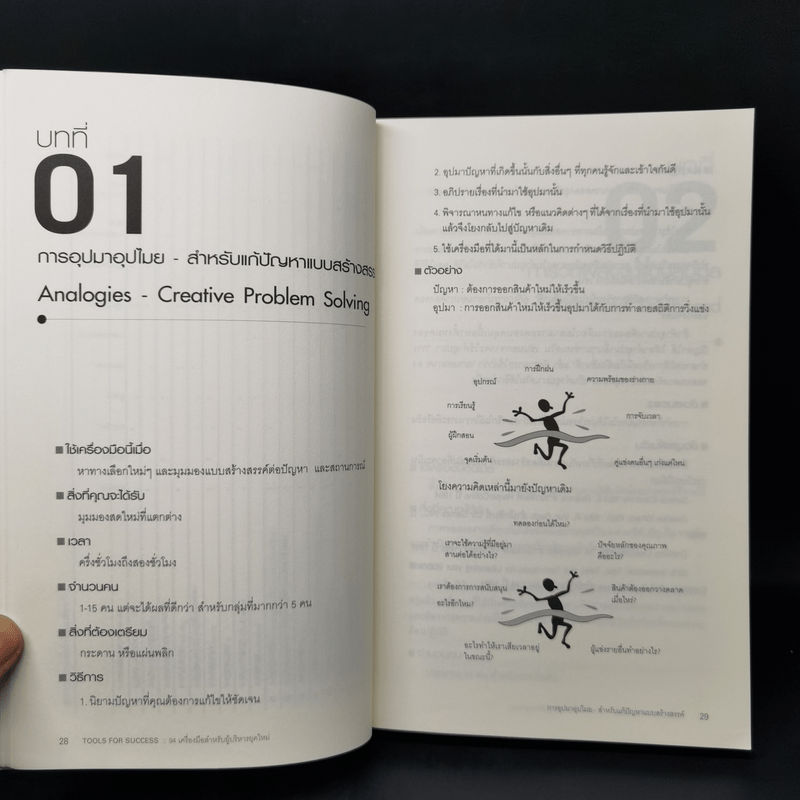 บทที่
01
การอุปมาอุปไมย - สำหรับแก้ปัญหาแบบสร้างสรร
Analogies - Creative Problem Solving
ใช้เครื่องมือนี้เมื่อ
หาทางเลือกใหม่ๆ และมุมมองแบบสร้างสรรค์ต่อปัญหา และสถานการณ์
สิ่งที่คุณจะได้รับ
มุมมองสดใหม่ที่แตกต่าง
เวลา
ครึ่งชั่วโมงถึงสองชั่วโมง
จำนวนคน
1-15 คน แต่จะได้ผลที่ดีกว่า สำหรับกลุ่มที่มากกว่า 5 คน
สิ่งที่ต้องเตรียม
กระดาน หรือแผ่นพลิก
วิธีการ
1. นิยามปัญหาที่คุณต้องการแก้ไขให้ชัดเจน
28 TOOLS FOR SUCCESS : 94 เครื่องมือสำหรับผู้บริหารยุคใหม่
2. อุปมาปัญหาที่เกิดขึ้นนั้นกับสิ่งอื่นๆ ที่ทุกคนรู้จักและเข้าใจกันดี
3. อภิปรายเรื่องที่นำมาใช้อุปมานั้น
4. พิจารณาหนทางแก้ไข หรือแนวคิดต่างๆ ที่ได้จากเรื่องที่นำมาใช้อุปมานั้น
แล้วจึงโยงกลับไปสู่ปัญหาเดิม
5. ใช้เครื่องมือที่ได้มานี้เป็นหลักในการกำหนดวิธีปฏิบัติ
ตัวอย่าง
ปัญหา : ต้องการออกสินค้าใหม่ให้เร็วขึ้น
อุปมา : การออกสินค้าใหม่ให้เร็วขึ้นอุปมาได้กับการทำลายสถิติการวิ่งแข่ง
การฝึกฝน
อุปกรณ์
ความพร้อมของร่างกาย
การเรียนรู้
การจับเวลา
ผู้ฝึกสอน
จุดเริ่มต้น
คู่แข่งคนอื่นๆ เก่งแค่ไหน
โยงความคิดเหล่านี้มายังปัญหาเดิม
ทดลองก่อนได้ไหม?
เราจะใช้ความรู้ที่มีอยู่มา
สานต่อได้อย่างไร?
ปัจจัยหลักของคุณภาพ
คืออะไร?
เราต้องการการสนับสนุน
อะไรอีกไหม?
สินค้าต้องออกวางตลาด
เมื่อไหร่?
อะไรทำให้เราเสียเวลาอยู่
ในขณะนี้?
ผู้แข่งรายอื่นทำอย่างไร?
การอุปมาอุปไมย - สำหรับแก้ปัญหาแบบสร้างสรรค์ 29